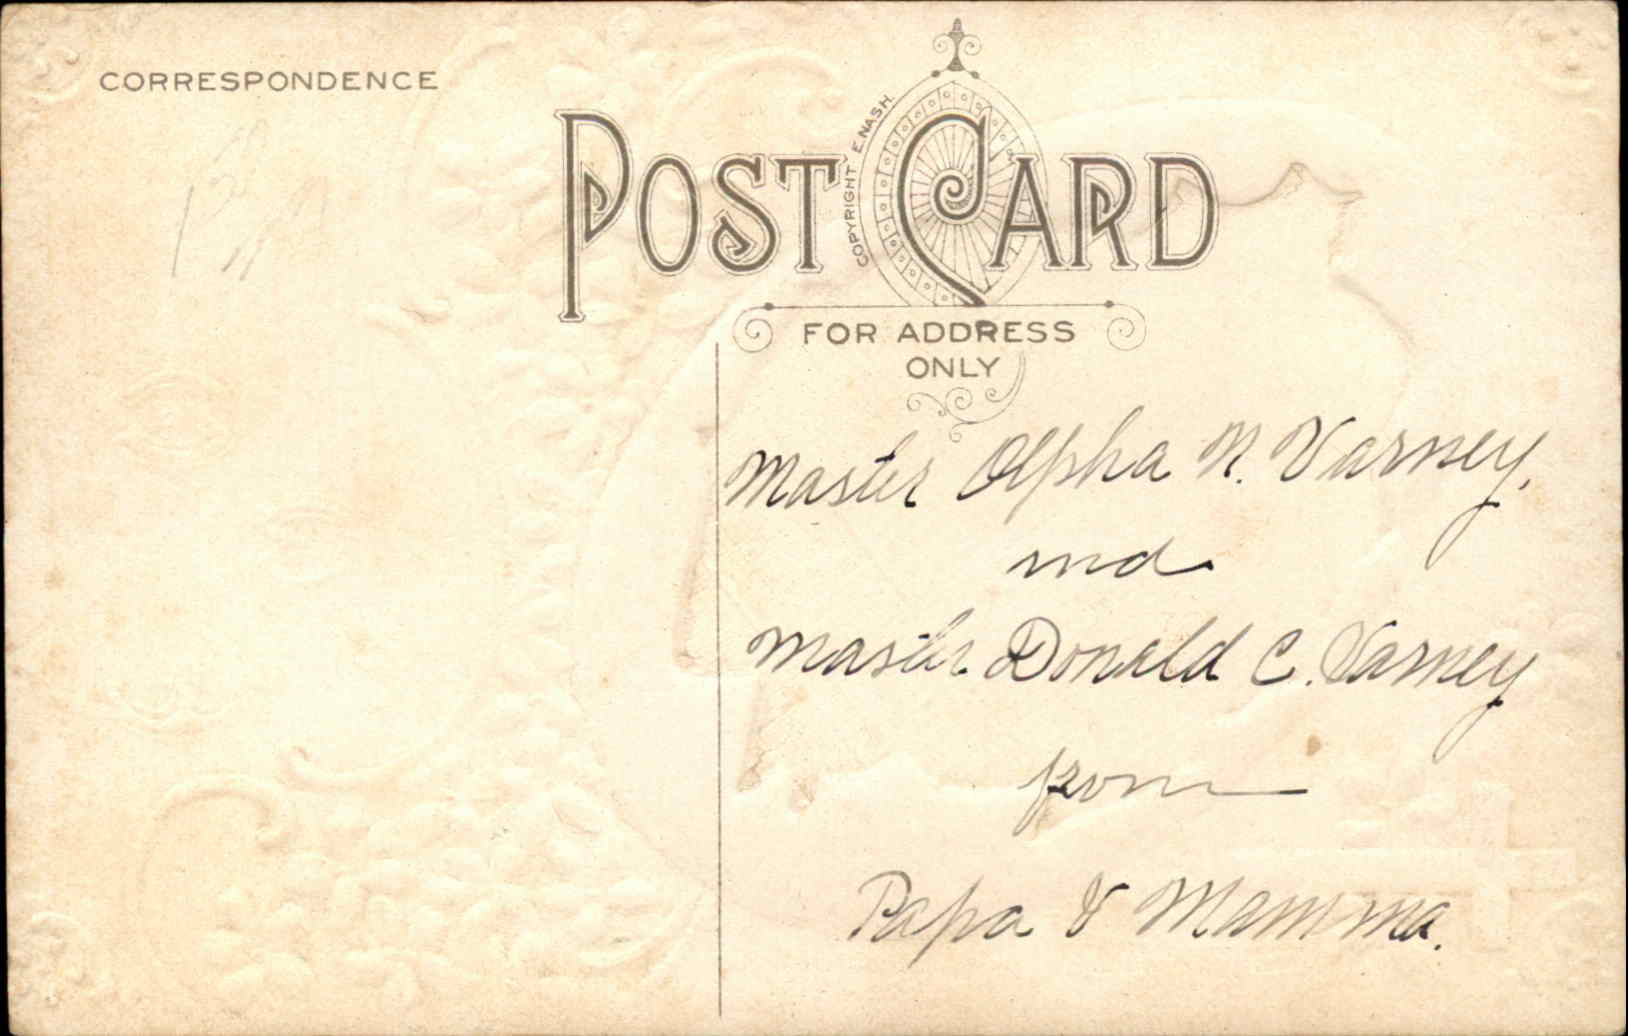 CORRESPONDENCE
POST CARD
COPYRIGHT E. NASH.
FOR ADDRESS
ONLY
Master Alpha N. Varney,
and
Master Donald C. Varney
from
Papa & Mamma.